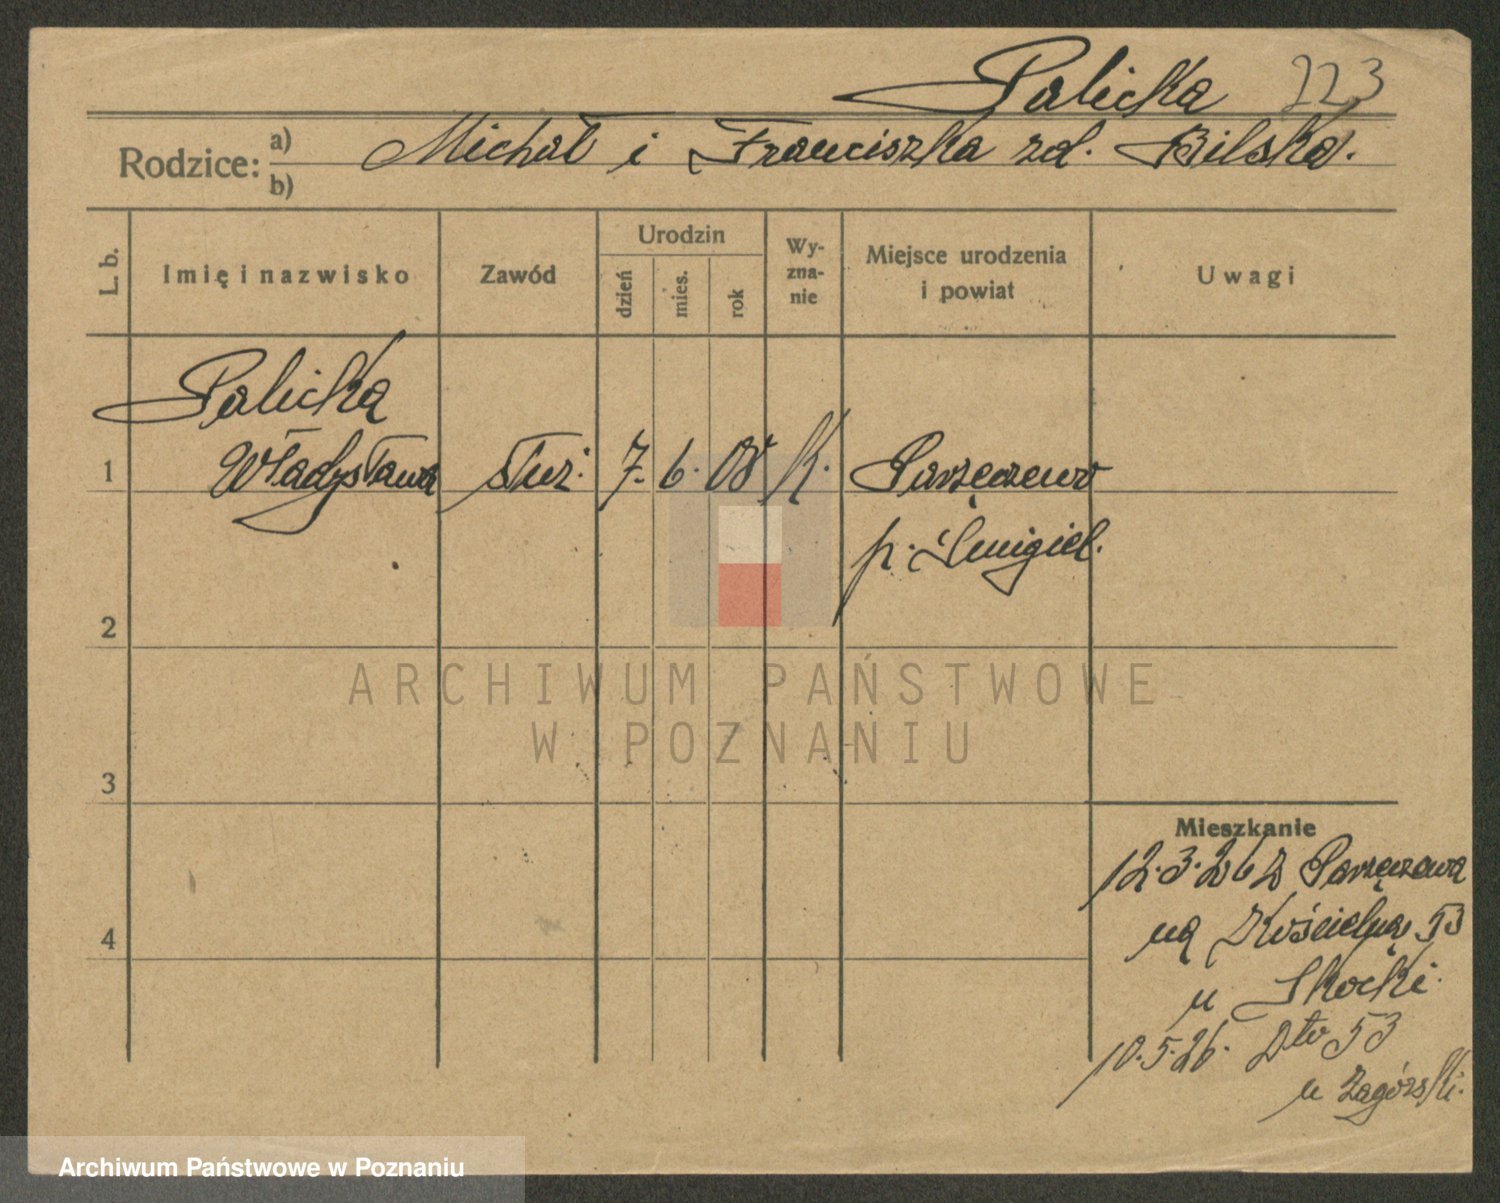 Palicka 223
Rodzice: a) Michał i Franciszka zd. Bilska.
b)
L. b.
Imię i nazwisko
Zawód
Urodzin
dzień
mies.
rok
Wy-
zna-
nie
Miejsce urodzenia
i powiat
Uwagi
Palicka
1 Władysława służ. 7. 6. 08 K. Parzęczewo
p. Śmigiel.
2
ARCHIWUM PAŃSTWOWE
W POZNANIU
3
Mieszkanie
12.3.26 z Parzęczewa
4
na Kościelną 53
u Skocki.
10.5.26. Dto 53
u Zagórski.
Archiwum Państwowe w Poznaniu